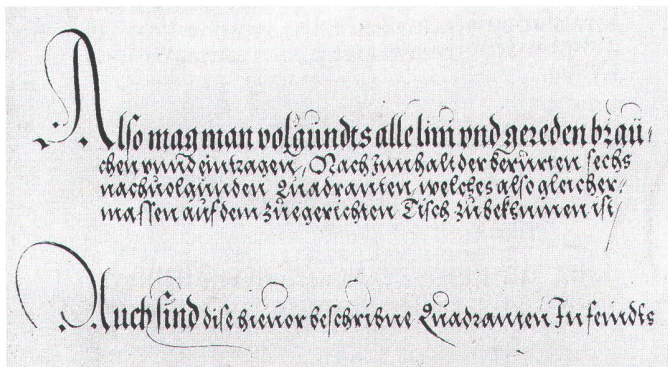 Also mag man volgündts alle lini vnd gereden braü-
chen vnnd eintragen, Nach Innhalt der berürten sechs
nachuolgünden Quadranten, welches also gleicher-
massen auf dem züegerichten Tisch zübekhümen ist/
Auch sind dise hieuor beschribne Quadranten In feindts